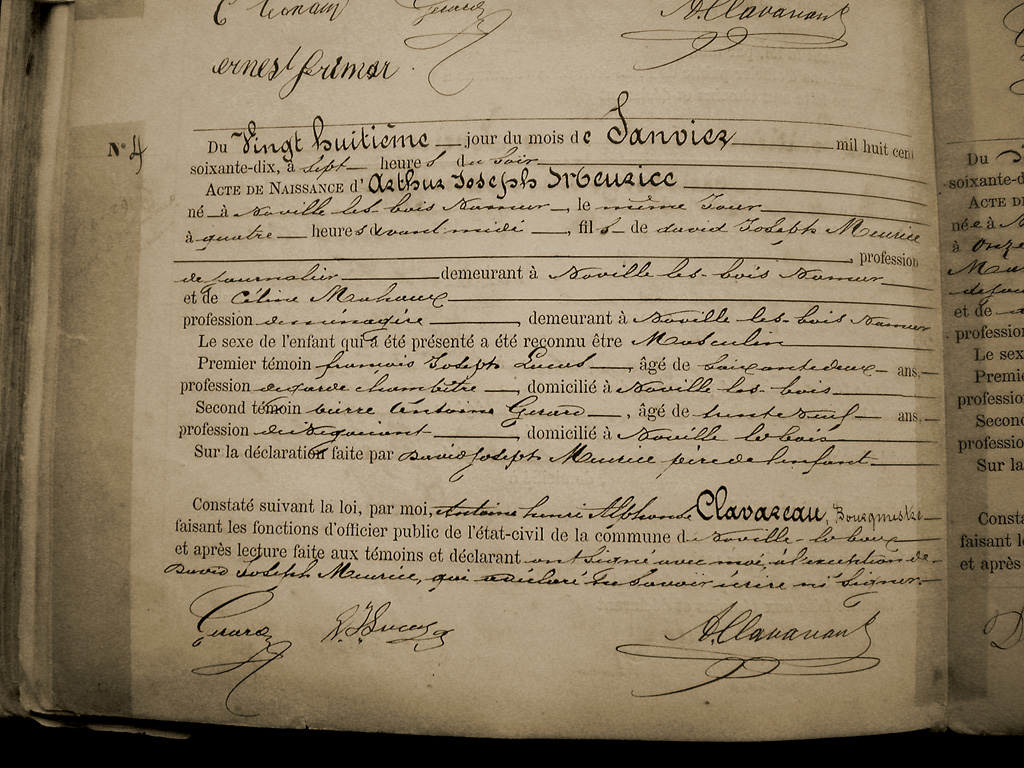 Gerard A. Clavareau
ernest
N° 4
Du Vingt huitième jour du mois de Janvier mil huit cent
soixante-dix, à sept heures du soir
Acte de Naissance d'Arthur Joseph Meurice
né à Noville les-bois Namur, le même jour
à quatre heures avant midi, fils de david Joseph Meurice
, profession
de journalier demeurant à Noville les-bois Namur
et de Céline Mahaux
profession de ménagère, demeurant à Noville les-bois Namur
Le sexe de l'enfant qui a été présenté a été reconnu être Masculin
Premier témoin françois Joseph Lucas, âgé de soixante deux ans,
profession de garde champêtre, domicilié à Noville les-bois
Second témoin pierre Antoine Gerard, âgé de trente neuf ans,
profession de Négociant, domicilié à Noville les bois
Sur la déclaration faite par David Joseph Meurice père de l'enfant
Constaté suivant la loi, par moi, Antoine henri Alphonse Clavareau, Bourgmestre
faisant les fonctions d'officier public de l'état-civil de la commune de Noville-les bois
et après lecture faite aux témoins et déclarant ont signé avec moi, à l'exception de
David Joseph Meurice, qui a déclaré ne savoir écrire ni signer.
Gerard Lucas A. Clavareau
Du
soixante-d
Acte d
née à
à onze
et de
profession
Le sex
Premie
profession
Second
profession
Sur la
Consta
faisant le
et après